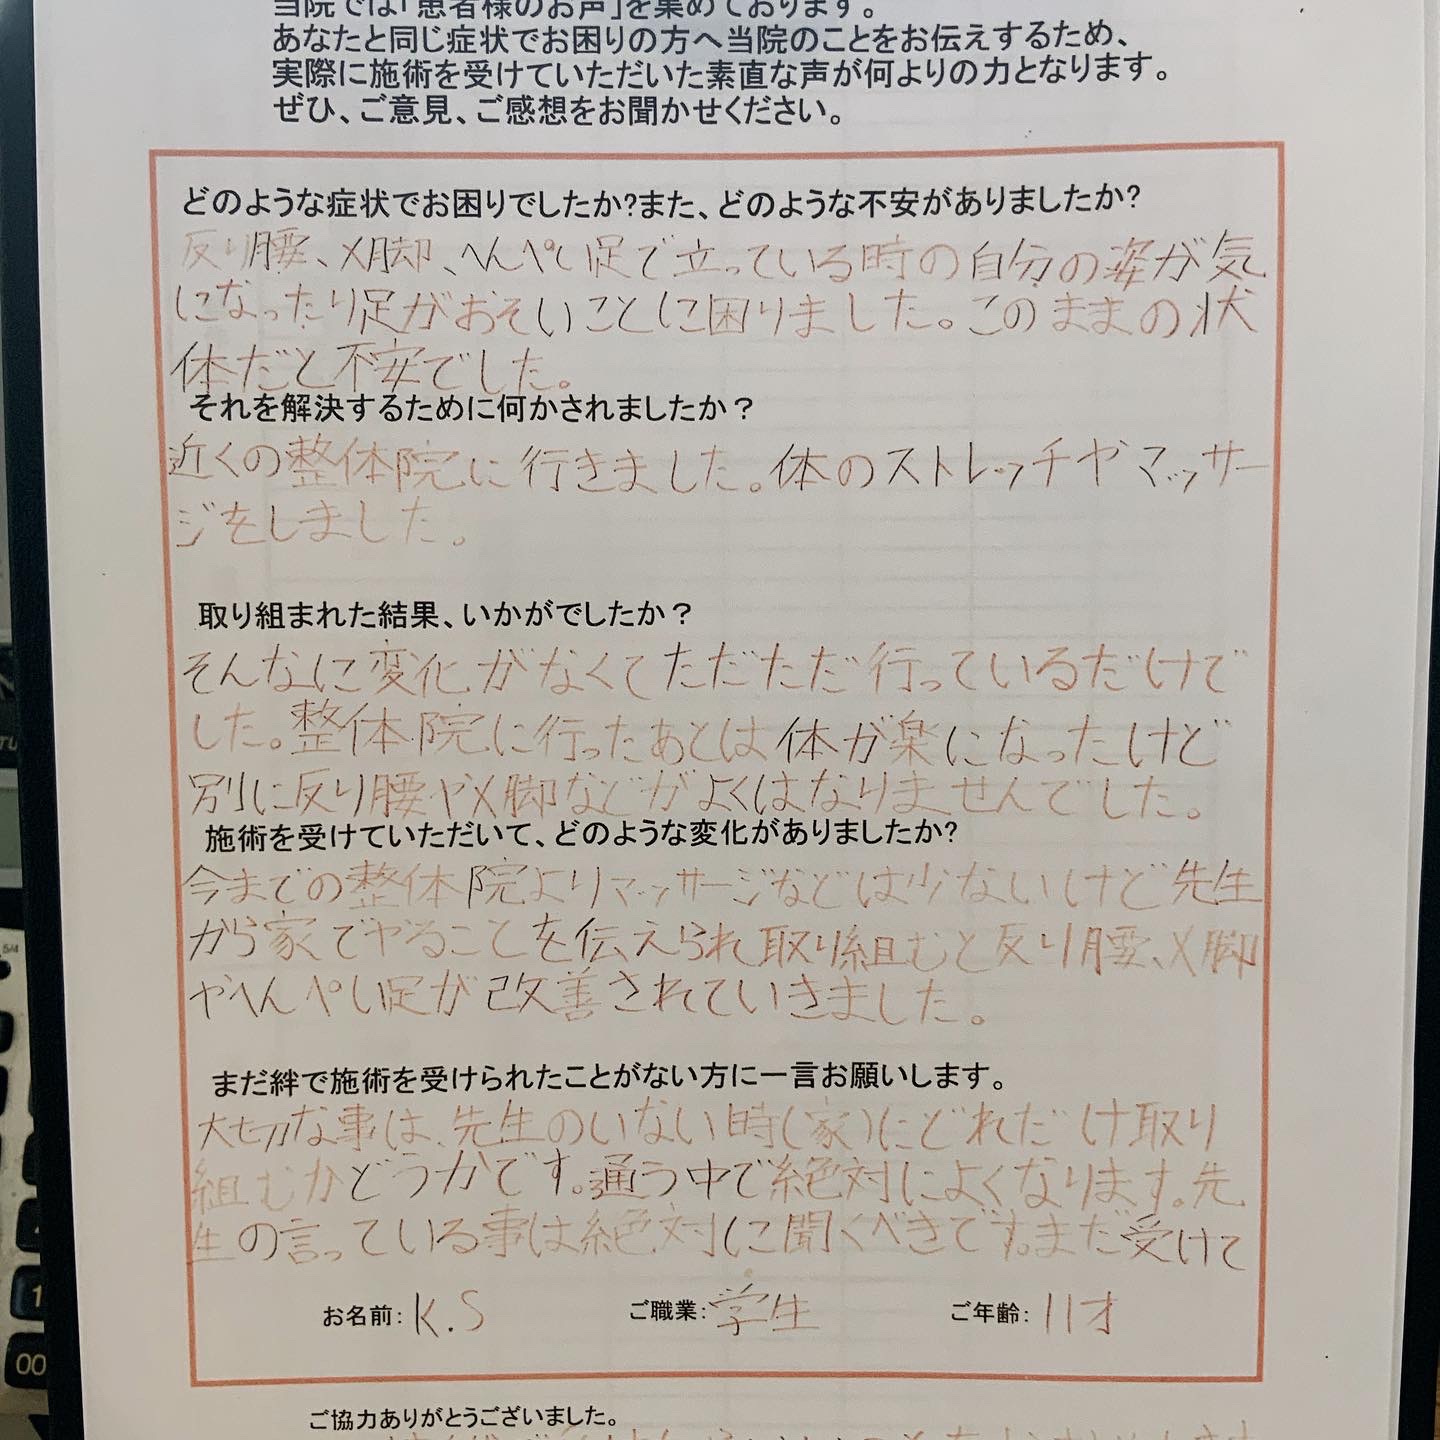 当院では「患者様のお声」を集めております。
あなたと同じ症状でお困りの方へ当院のことをお伝えするため、
実際に施術を受けていただいた素直な声が何よりの力となります。
ぜひ、ご意見、ご感想をお聞かせください。
どのような症状でお困りでしたか?また、どのような不安がありましたか?
反り腰、X脚、へんぺい足で立っている時の自分の姿が気
になったり足がおそいことに困りました。このままの状
体だと不安でした。
それを解決するために何かされましたか？
近くの整体院に行きました。体のストレッチやマッサー
ジをしました。
取り組まれた結果、いかがでしたか？
そんなに変化がなくてただただ行っているだけで
した。整体院に行ったあとは体が楽になったけど
別に反り腰やX脚などがよくはなりませんでした。
施術を受けていただいて、どのような変化がありましたか?
今までの整体院よりマッサージなどは少ないけど先生
から家でやることを伝えられ取り組むと反り腰、X脚
やへんぺい足が改善されていきました。
まだ絆で施術を受けられたことがない方に一言お願いします。
大切な事は、先生のいない時(家)にどれだけ取り
組むかどうかです。通う中で絶対によくなります。先
生の言っている事は絶対に聞くべきです。まだ受けて
お名前: K.S ご職業: 学生 ご年齢: 11才
ご協力ありがとうございました。